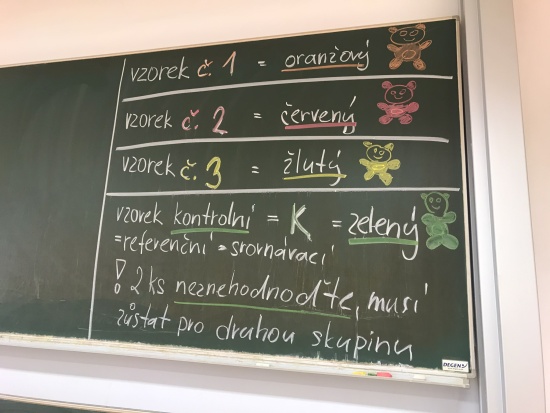 vzorek č. 1 = oranžový
vzorek č. 2 = červený
vzorek č. 3 = žlutý
vzorek kontrolní = K = zelený
=referenční = srovnávací
! 2 ks neznehodnoďte, musí
zůstat pro druhou skupinu